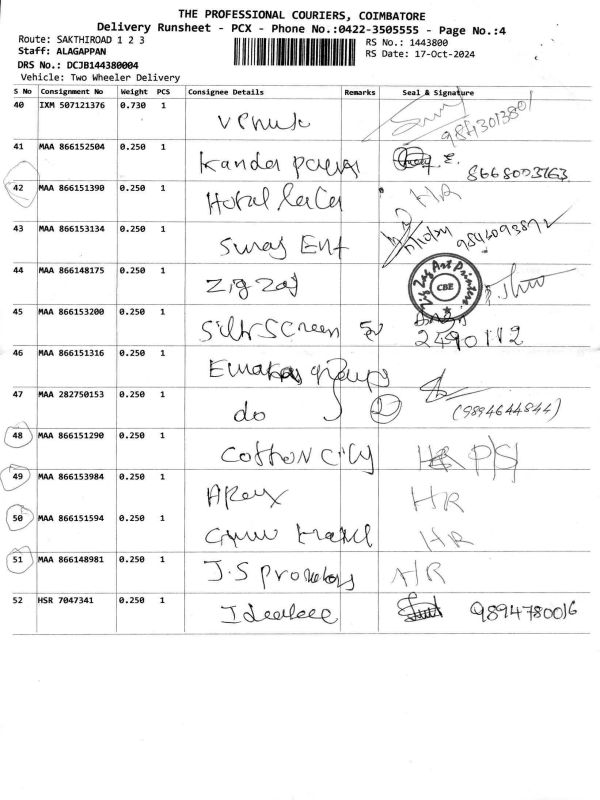 THE PROFESSIONAL COURIERS, COIMBATORE
Delivery Runsheet - PCX - Phone No.:0422-3505555 - Page No.:4
Route: SAKTHIROAD 1 2 3
RS No.: 1443800
Staff: ALAGAPPAN
RS Date: 17-Oct-2024
DRS No.: DCJB144380004
Vehicle: Two Wheeler Delivery
S No Consignment No Weight PCS Consignee Details Remarks Seal & Signature
40 IXM 507121376 0.730 1 Venus
9843013801
41 MAA 866152504 0.250 1 E.
42 MAA 866151390 0.250 1 Hotel HR
43 MAA 866153134 0.250 1 Suraj Ent
44 MAA 866148175 0.250 1 Zig Zag
Zig Zag Art Printers
CBE
45 MAA 866153200 0.250 1 Silk Screen
2490112
46 MAA 866151316 0.250 1
47 MAA 282750153 0.250 1 do 2 (9894644844)
48 MAA 866151290 0.250 1 Cotton City P/S
49 MAA 866153984 0.250 1 HR
50 MAA 866151594 0.250 1 HR
51 MAA 866148981 0.250 1 J.S HR
52 HSR 7047341 0.250 1 9894780016